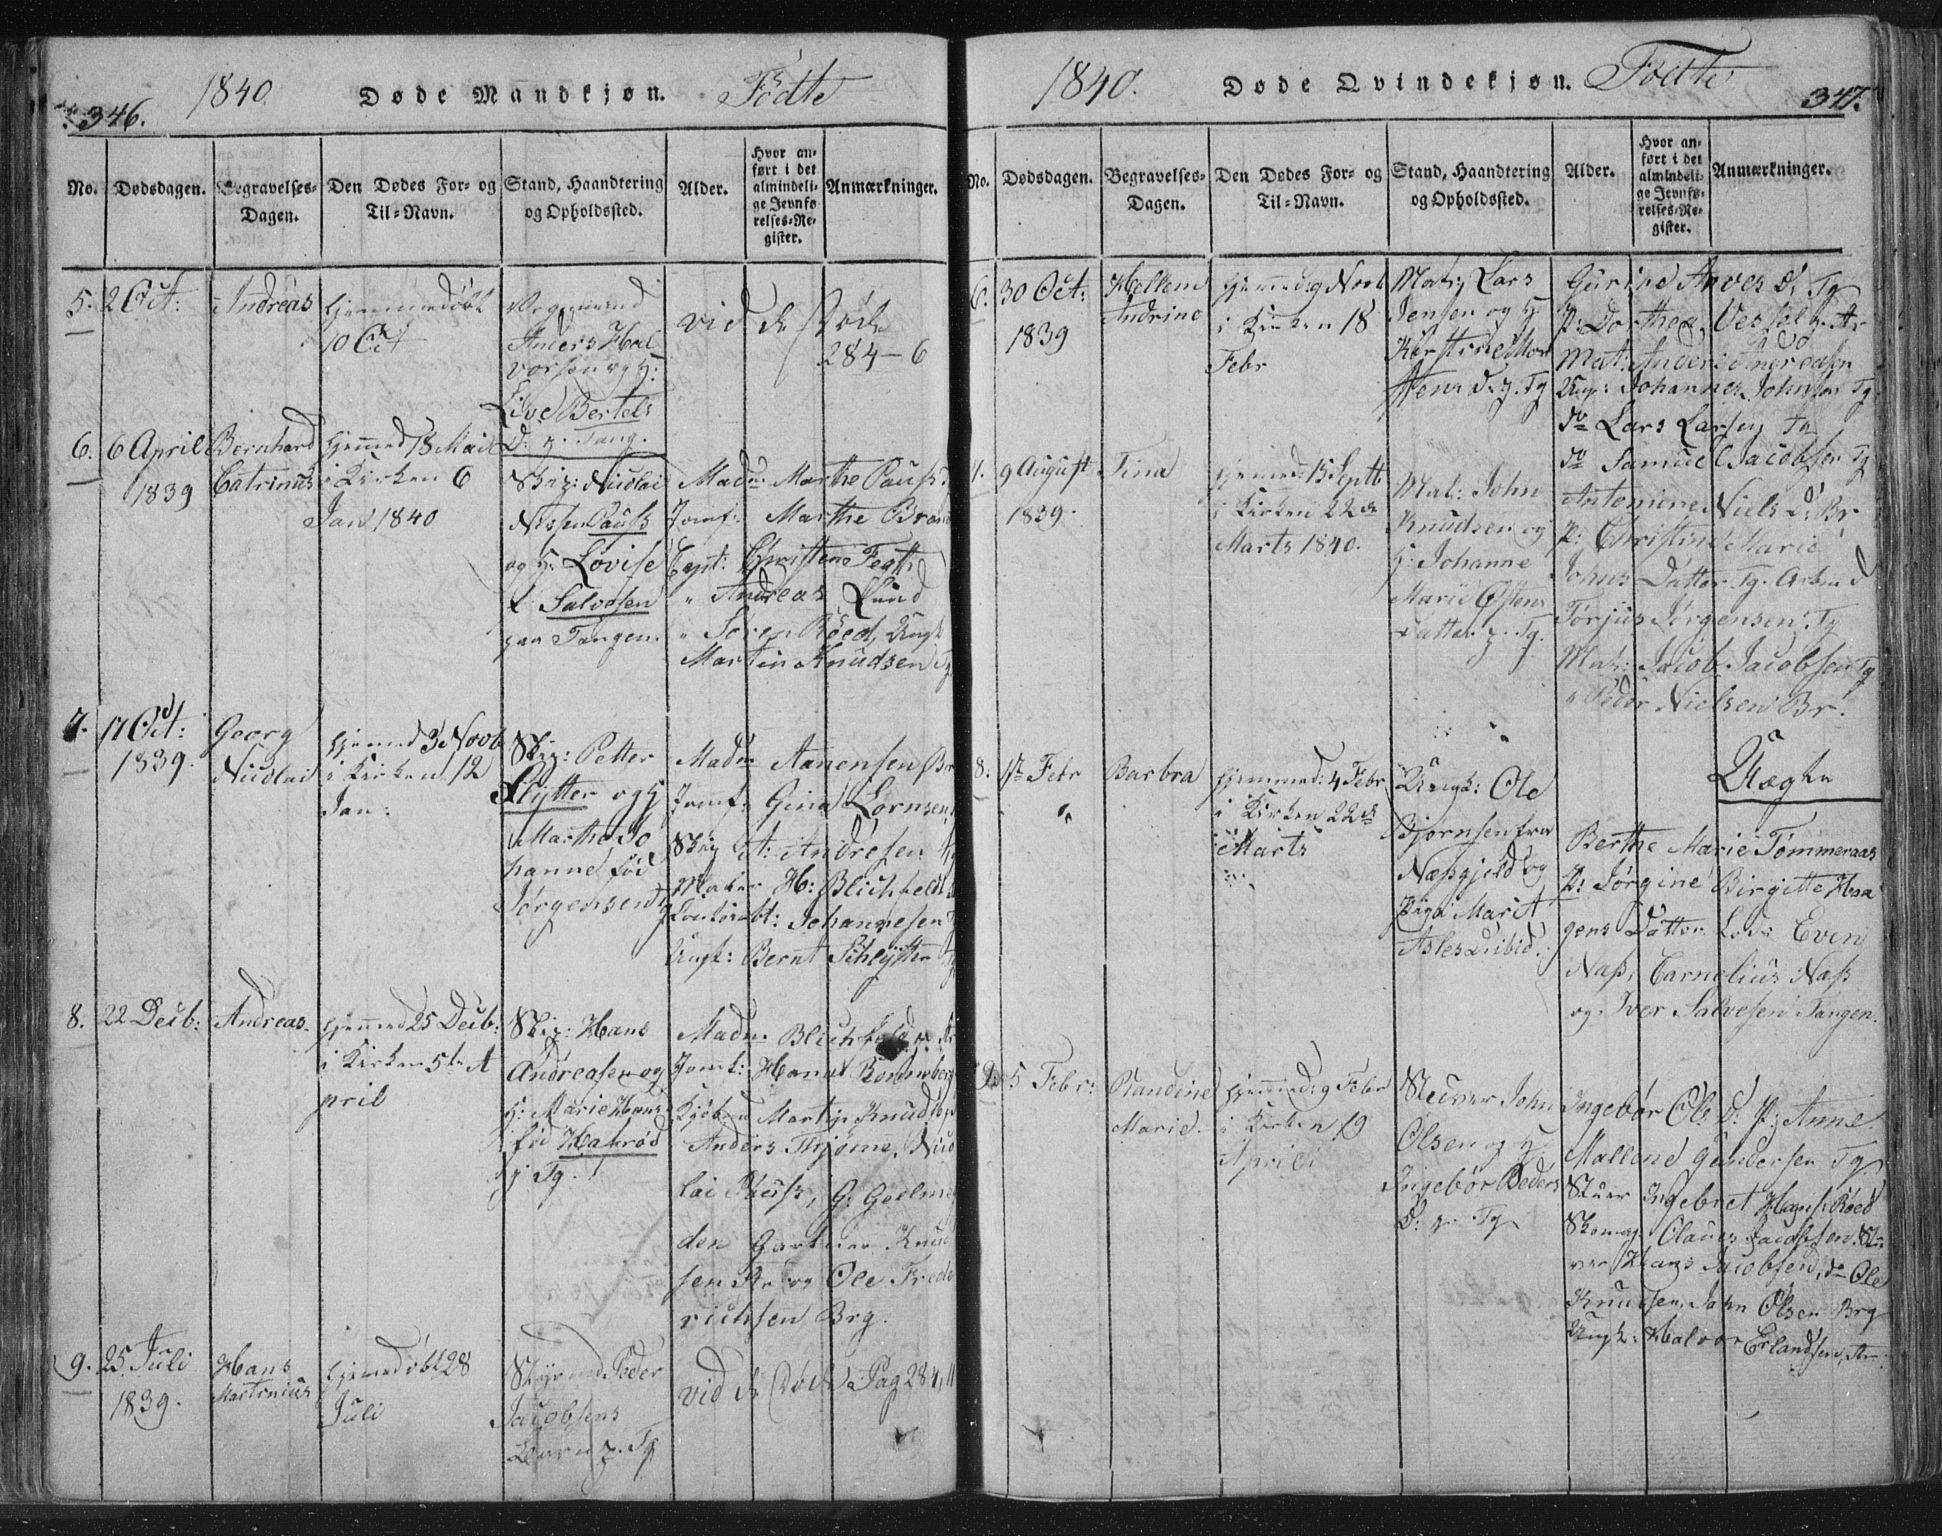 346.
1840
Døde Mandkjøn. Fødte
No.
Dødsdagen.
Begravelses-
Dagen.
Den Dødes For- og
Til-Navn.
Stand, Haandtering
og Opholdssted.
Alder.
Hvor an-
ført i det
almindeli-
ge Jevnfø
relses-Re-
gister.
Anmærkninger.
5.
2 Oct:
Andreas
hjemmedøbt
10 Oct
Anders Hal
vorsen og H:
Live Bertels
D. p. Tang.
vid de Døde
284-6
6.
6 April
1839
Bernhard
Catrinus
hjemmed 13 Mai
i Kirken 6
Jan 1840
Skip: Nicolai
Nissen Pauss
og H: Lovise
f. Salvesen
paa Tangen.
Madm. Marthe Pauss
Jomf: Marthe
Capt: Christen Feght
" Andreas Lund
" Soren Röed, Ungk
Martin Knudsen Tg
7.
17 Oct:
1839
Georg
Nicolai
hjemmed 3 Novb
i Kirken 12
Jan:
Skip: Petter
Slytter og H
Marthe Jo
hanne fød
Jørgensen Tg
Madm Aanensen Br
Jomf: Gina Lornsen
Skip A: Andresen
H: Blichfeldt
Johannesen
Ungk: Bernt Schlytter
8.
22 Decb:
Andreas.
hjemmed 25 Decb:
i Kirken 5te A
pril
Skip: Hans
Andreasen og
H: Marie Hans
fød Hahrød
p Tg.
Madm. Blichfeld
Jomf: Hanna
Martin Knudsen
Anders Thjøme, Nico
lai Pauss, G:
den Gartner Knud
sen Ar og Ole Frede
richsen Brg.
9.
25 Juli
1839.
Hans
Martinius
hjemmedøbt 28
Juli
Peder
Jacobsens
Barn p. Tg
vid de Døde Pag 284, 11
1840.
Døde Qvindekjøn. Fødte
347.
No.
Dødsdagen.
Begravelses-
Dagen.
Den Dødes For- og
Til-Navn.
Stand, Haandtering
og Opholdssted.
Alder.
Hvor an-
ført i det
almindeli-
ge Jevnfø-
relses-Re-
gister.
Anmærkninger.
6.
30 Oct:
1839
Hellene
Andrine
hjemmed 9 Novb
i Kirken 18
Febr
Mat: Lars
Jensen og H
Kirstine Mor
tens D. p. Tg
Gurine Anves D. Tg
P: Dorthea Vessel p. Ar
Mat: Anders Andreasen
Ungk: Johannes Johnsen Tg
do Lars Larsen Tg
do Samuel Jacobsen Tg
7.
9 August
1839.
Tina
hjemmed: 15 Septb
i Kirken 22de
Marts 1840.
Mat: John
Knudsen og
H: Johanne
Marie Østens
Datter p. Tg.
Antomine Niels D. Br
P: Christine Marie
Johns Datter Tg. Arbm
Torjus Jørgensen Tg
Mat: Jacob Jacobsen Tg
" Peder Nielsen Br.
8.
1te Febr
"
Barbra
hjemmed: 4 Febr
i Kirken 22de
Marts
Ungk: Ole
Bjørnsen fra
Næsgjeld og
Pige Marit
Uægte
Berthe Marie Tømmeraas
P: Jørgine Birgitte Haa
gens Datter Lods Even
Næs, Carnelius Næs
og Iver Salvesen Tangen.
9.
5 Febr:
Randine
Marie.
hjemmed: 9 Febr
i Kirken 19
April
Stuver John
Olsen og H
Ingebør Peders
D. p Tg
Ingebør Ole D. P: Anne
Mallene Gundersen Tg
Stuer Ingebret Hans: Röed
Skomag: Claus Jacobsen, Stu
ver Hans Jacobsen, do Ole
Knudsen, John Olsen Brg
Ungk: Halvor Erlandsen, Ar